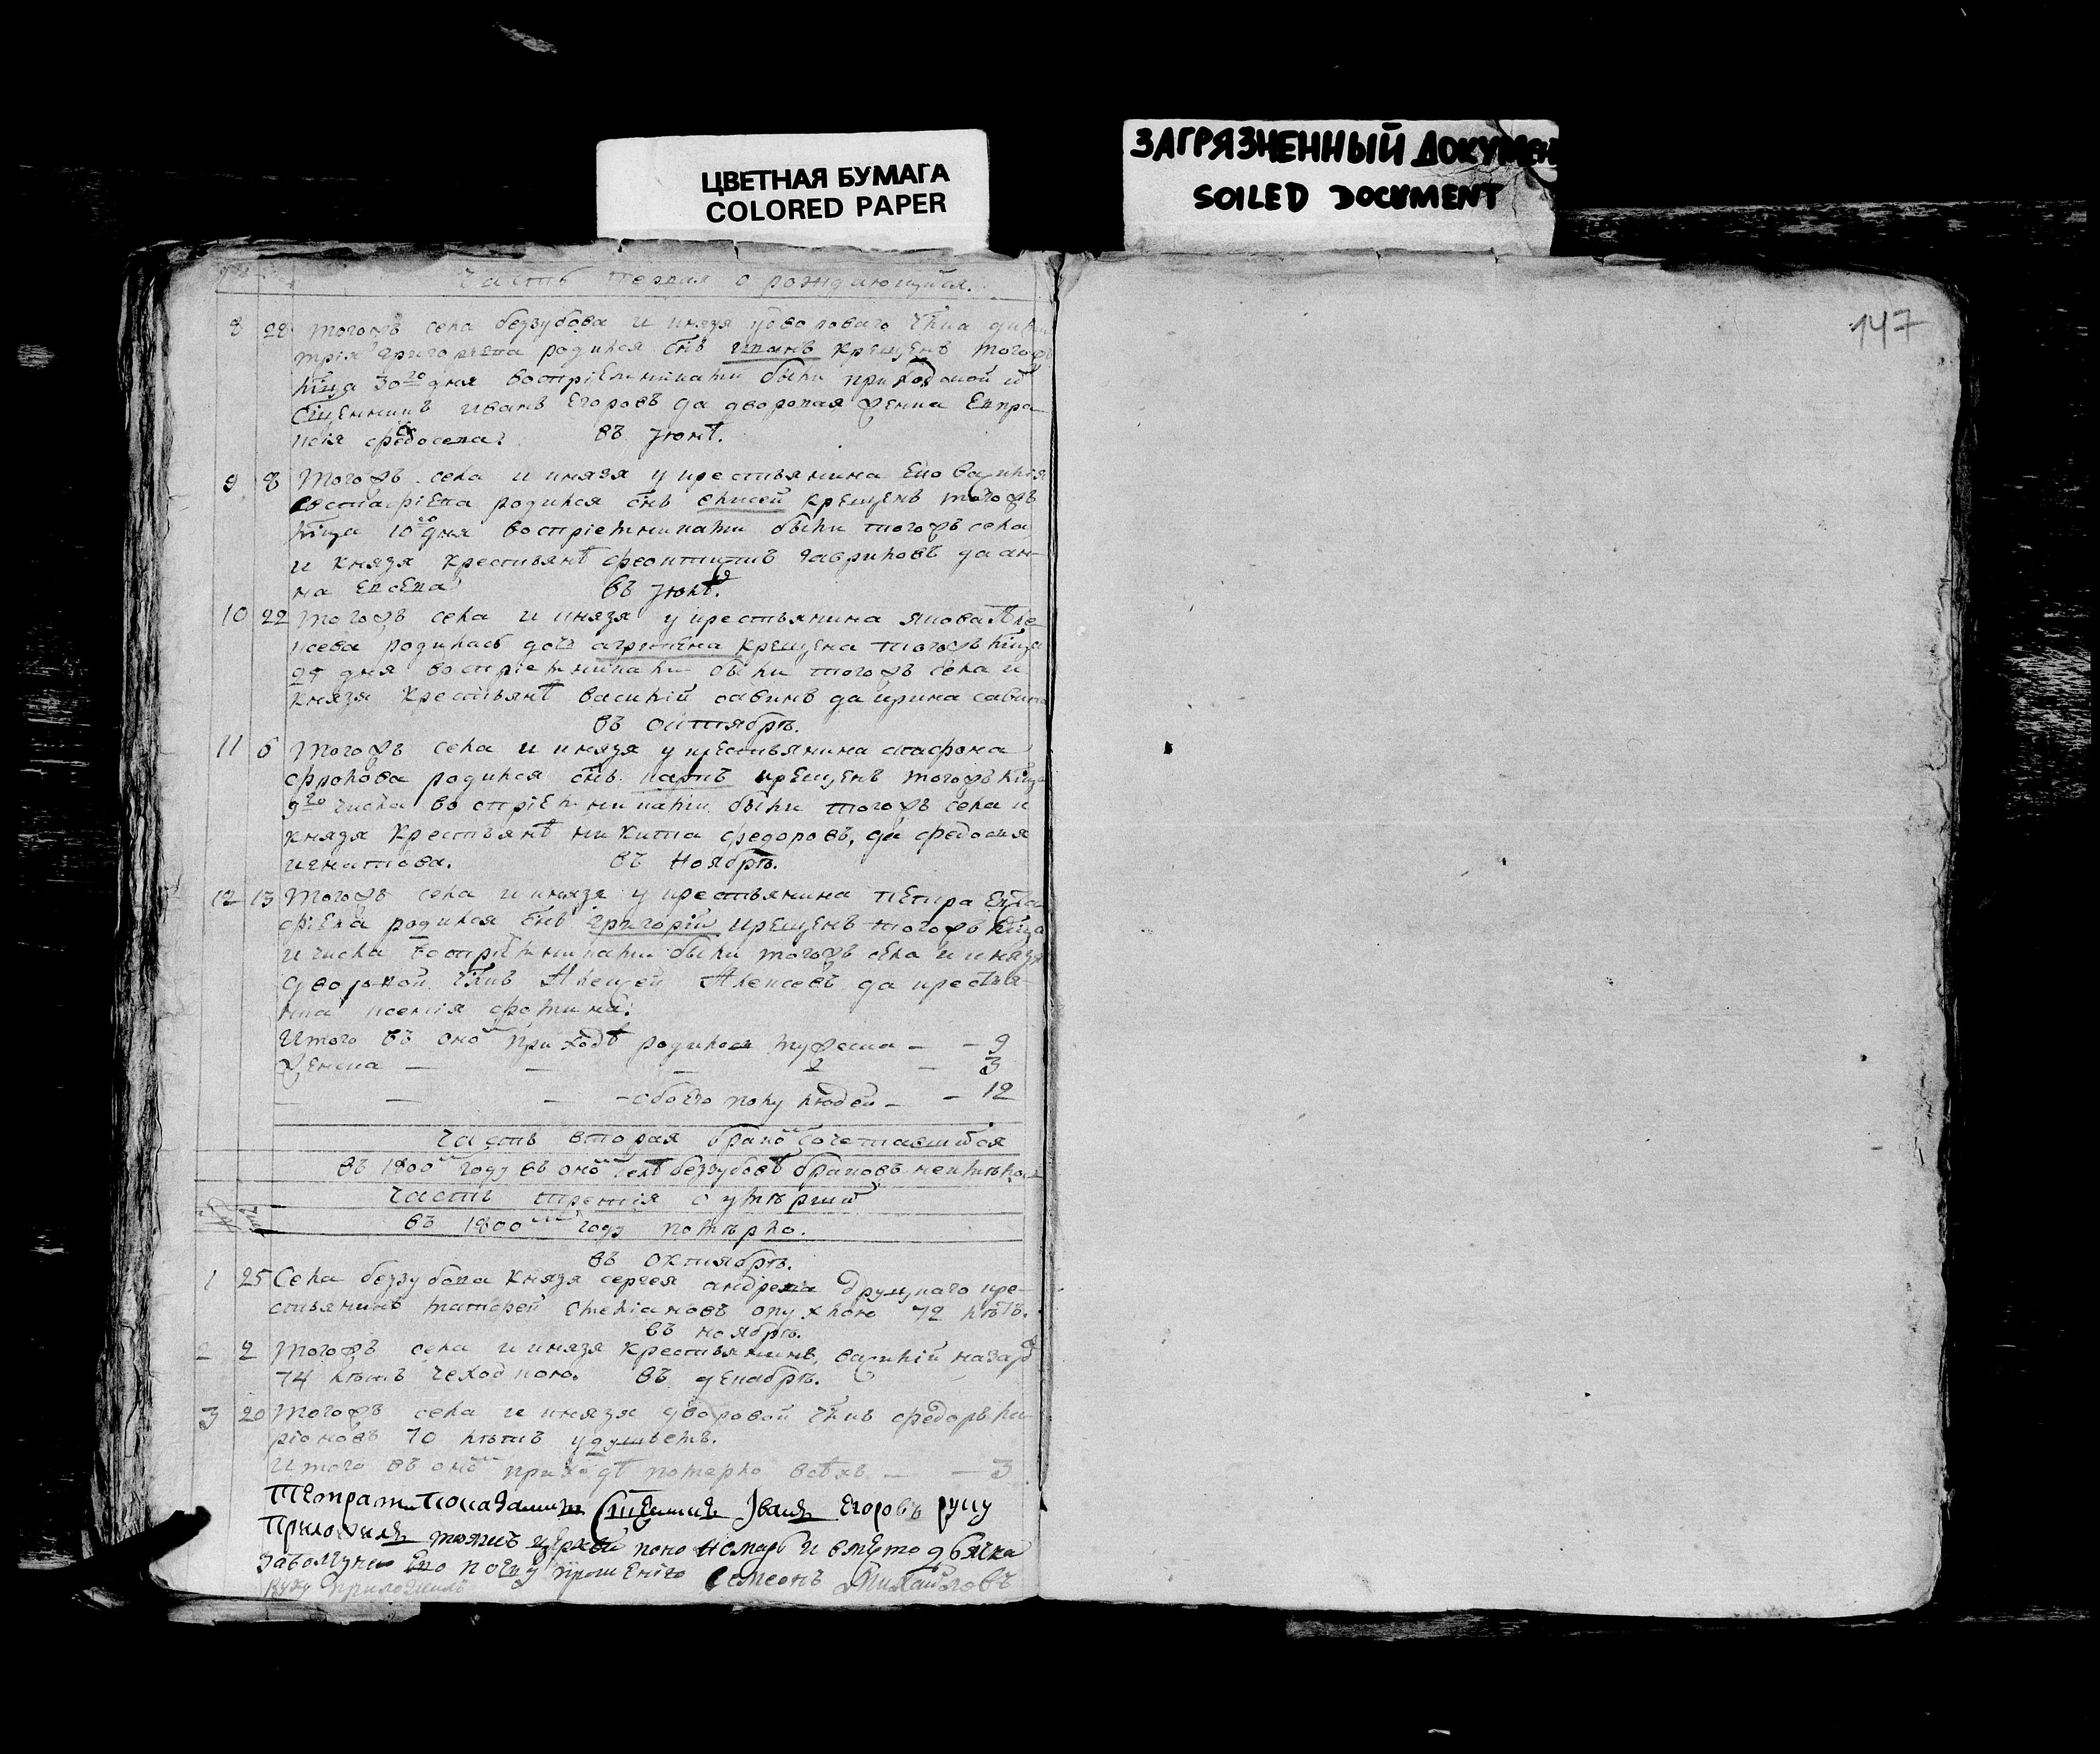 ЦВЕТНАЯ БУМАГА
COLORED PAPER
ЗАГРЯЗНЕННЫЙ ДОКУМЕН
SOILED DOCUMENT
147
Часть первая о рождающихся.
8 28 тогожъ села безубова и князя у дворового члка дими
трія григорьева родился снъ иванъ крещенъ тогожъ
мца 30го дня воспріемниками были приходской
сщенникъ иванъ Егоровъ да дворовая женка Евпра
ксія федосеева. въ июнѣ.
9 8 Тогожъ села и князя у крестьянина
евстафіева родился снъ елисей крещенъ тогожъ
мца 10го дня воспріемниками были тогожъ села
и князя крестьянѣ феоктистъ гавриловъ да ан-
на въ июлѣ.
10 22 Тогожъ села и князя у крестьянина якова Але
ксева родилась дочь агрипена крещена тогожъ мца
25 дня воспріемниками были тогожъ села и
князя крестьянѣ василій савинъ да ирина савина
въ октябрѣ.
11 6 Тогожъ села и князя у крестьянина агафона
фролова родился снъ карпъ крещенъ тогожъ мца
9го числа воспріемниками были тогожъ села и
князя крестьянѣ никита федоровъ, да федосия
игнатова. въ ноябрѣ.
12 13 Тогожъ села и князя у крестьянина петра Евста
фіева родился снъ григорій крещенъ тогожъ мца
и числа воспріемниками были тогожъ села и князя
дворовой члкъ Алексей Алексевъ да крестья-
нка ксенія фомина.
Итого въ ономъ приходѣ родилося мужеска - - 9
Женска - - - - 3
- - - обоего полу людей - - 12
Часть вторая бракомъ сочетавшихся
въ 1800мъ году въ ономъ селѣ безубовѣ браковъ неимѣлось
Часть третія о умѣршихъ
въ 1800мъ году помѣрло.
въ октябрѣ.
1 25 Села безубова князя сергея андреева друцкаго кре-
стьянинъ матфей емеліановъ опухлою 72 лѣтъ.
въ ноябрѣ.
2 2 Тогожъ села и князя крестьянинъ, василій назаро
74 лѣтъ чехоткою. въ декабрѣ.
3 20 Тогожъ села и князя дворовой члкъ федоръ ла
ріоновъ 70 лѣтъ удушьемъ.
Итого въ ономъ приходѣ померло всѣхъ - - 3
Иванъ Егоровъ руку
приложилъ тояжъ церкви пономарь и вмѣсто дьячка
по его прошению Симеонъ Михайловъ
руку приложилъ